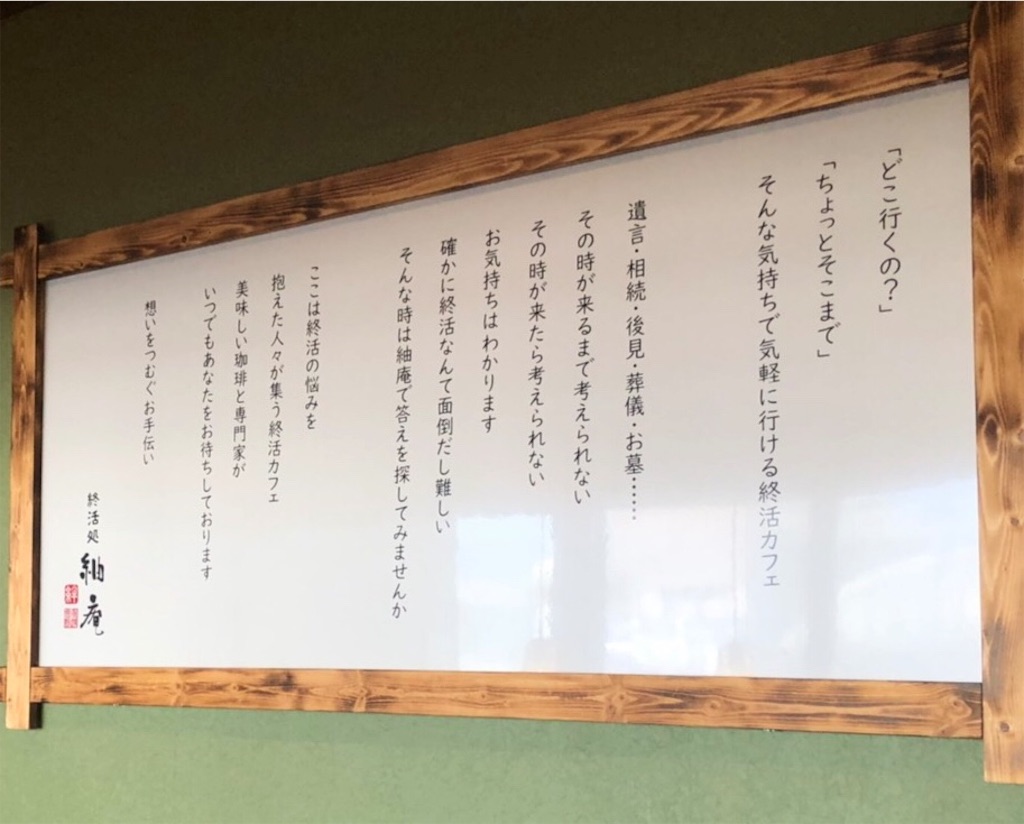 「どこ行くの？」
「ちょっとそこまで」
そんな気持ちで気軽に行ける終活カフェ
遺言・相続・後見・葬儀・お墓……
その時が来るまで考えられない
その時が来たら考えられない
お気持ちはわかります
確かに終活なんて面倒だし難しい
そんな時は紬庵で答えを探してみませんか
ここは終活の悩みを
抱えた人々が集う終活カフェ
美味しい珈琲と専門家が
いつでもあなたをお待ちしております
想いをつむぐお手伝い
終活処
紬庵